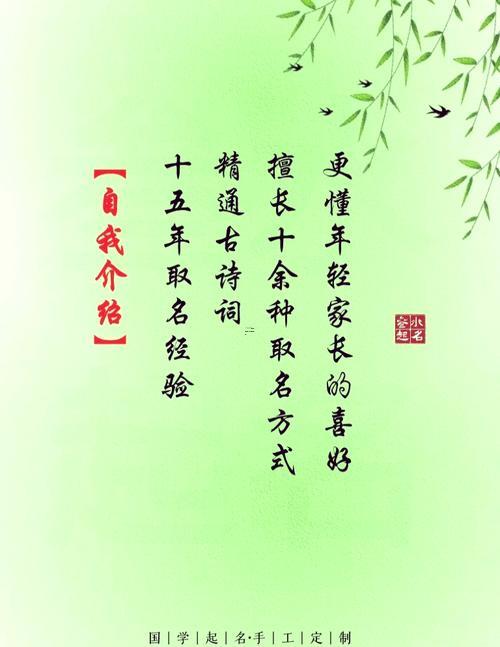 【自我介绍】
十五年取名经验
精通古诗词
擅长十余种取名方式
更懂年轻家长的喜好
小名
国|学|起|名·手|工|定|制